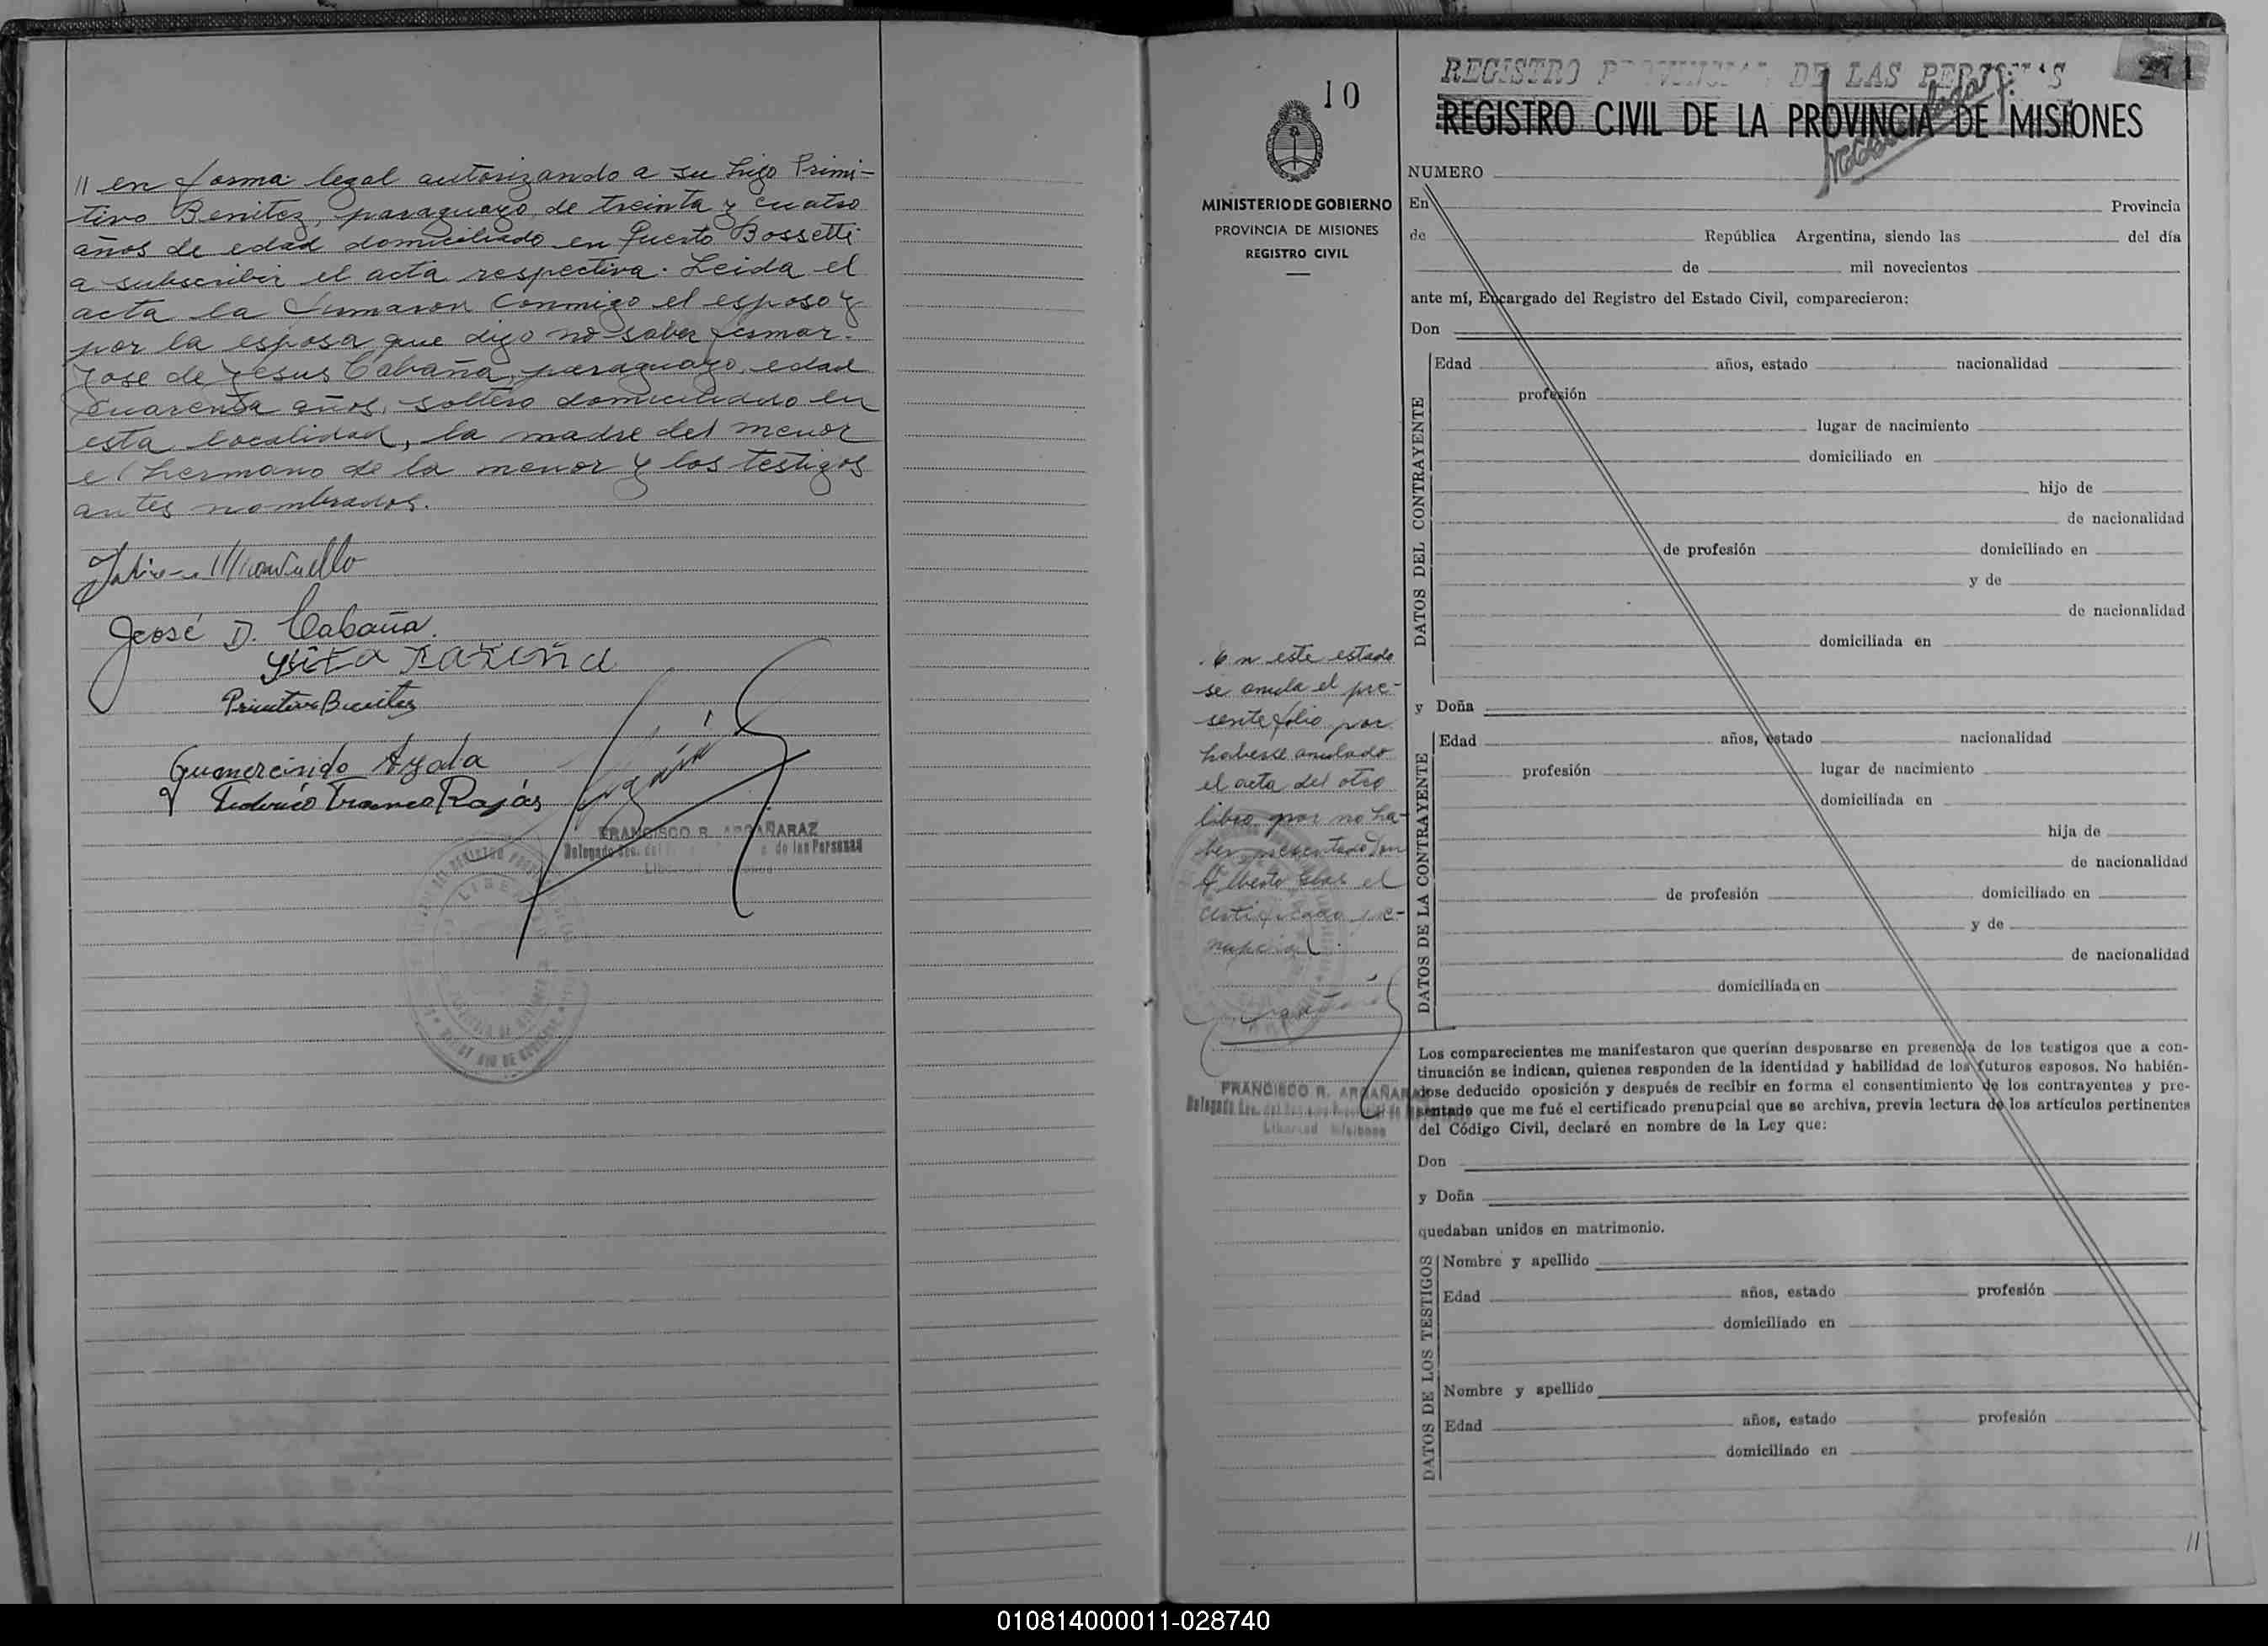 // en forma legal autorizando a su hijo Primi-
tivo Benitez, paraguayo, de treinta y cuatro
años de edad domiciliado en Puerto Bossetti
a subscribir el acta respectiva. Leida el
acta la firmaron conmigo el esposo y
por la esposa que dijo no saber firmar.
Jose de Jesus Cabaña, paraguayo, edad
cuarenta años, soltero domiciliado en
esta localidad, la madre del menor
el hermano de la menor y los testigos
antes nombrados.
José D. Cabaña.
Primitivo Benitez
Gumercindo Ayala
Federico Franco Rojas
FRANCISCO R. ARGAÑARAZ
de las Personas
10
MINISTERIO DE GOBIERNO
PROVINCIA DE MISIONES
REGISTRO CIVIL
En este estado
se anula el pre-
sente folio por
haberse anulado
el acta del otro
libro por no ha-
ber presentado Don
Alberto el
certificado pre-
nupcial.
FRANCISCO R. ARGAÑARAZ
Libertad Misiones
REGISTRO PROVINCIAL DE LAS PERSONAS
271
REGISTRO CIVIL DE LA PROVINCIA DE MISIONES
NUMERO
En Provincia
de República Argentina, siendo las del día
de mil novecientos
ante mí, Encargado del Registro del Estado Civil, comparecieron:
Don
DATOS DEL CONTRAYENTE
Edad años, estado nacionalidad
profesión
lugar de nacimiento
domiciliado en
hijo de
de nacionalidad
de profesión domiciliado en
y de
de nacionalidad
domiciliada en
y Doña
DATOS DE LA CONTRAYENTE
Edad años, estado nacionalidad
profesión lugar de nacimiento
domiciliada en
hija de
de nacionalidad
de profesión domiciliado en
y de
de nacionalidad
domiciliada en
Los comparecientes me manifestaron que querían desposarse en presencia de los testigos que a con-
tinuación se indican, quienes responden de la identidad y habilidad de los futuros esposos. No habién-
dose deducido oposición y después de recibir en forma el consentimiento de los contrayentes y pre-
sentado que me fué el certificado prenupcial que se archiva, previa lectura de los artículos pertinentes
del Código Civil, declaré en nombre de la Ley que:
Don
y Doña
quedaban unidos en matrimonio.
DATOS DE LOS TESTIGOS
Nombre y apellido
Edad años, estado profesión
domiciliado en
Nombre y apellido
Edad años, estado profesión
domiciliado en
//
010814000011-028740